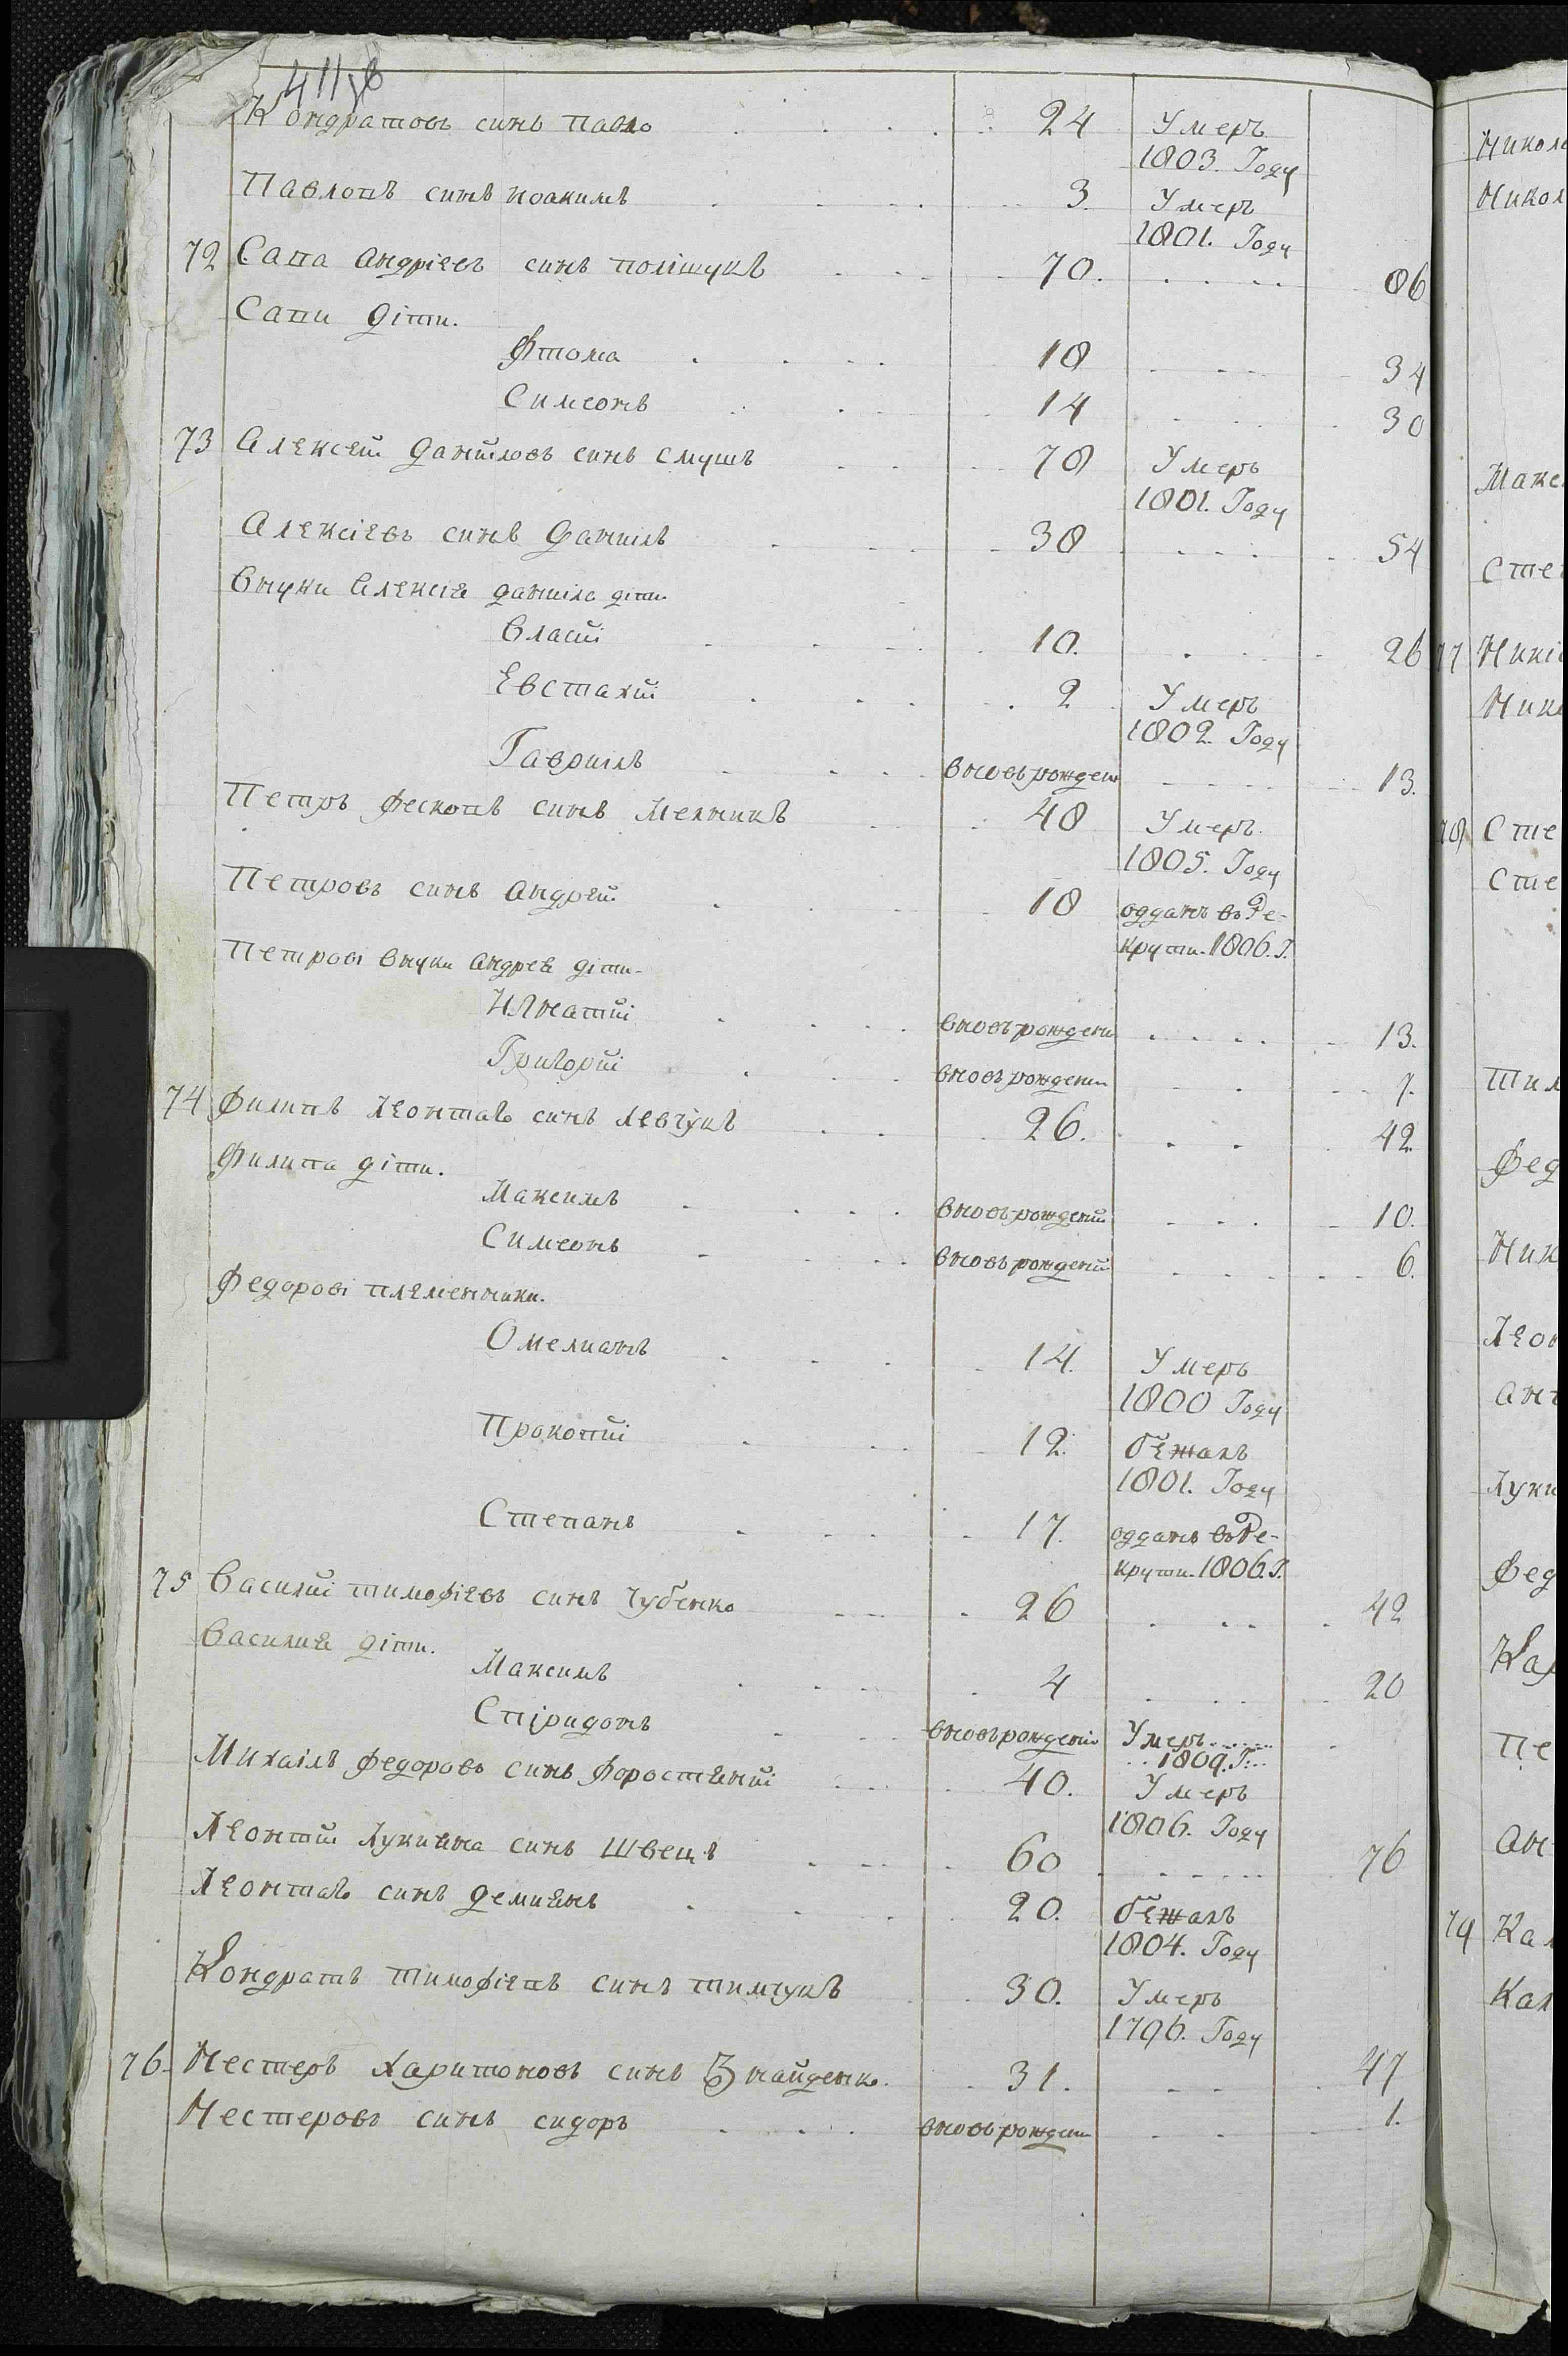 Кондратовъ синъ Павло 24 Умеръ
1803. Году
Павловъ синъ Иоакимъ 3 Умеръ
1801. Году
72 Сапа Андріевъ синъ Поліщукъ 70. 86
Сапи діти.
Фтома 18 34
Симеонъ 14 30
73 Алексей Данйловъ синъ Смушъ 78 Умеръ
1801. Году
Алексіевъ синъ Данилъ 38 54
Внуки Алексія Данила діти
Власій 10. 26
Евстахій 2 Умеръ
1802. Году
Гавриілъ вновь рожден 13.
Петръ Фесковъ синъ Мелникъ 48 Умеръ
1805. Году
Петровъ синъ Андрей 18 оддань въ Ре-
крути. 1806. Г.
Петрові внуки Андрея діти
Игнатій вновь рождени 13.
Григорій вновь рождени 7.
74 Филипъ Леонтіевъ синъ Левчукъ 26. 42
Филипа діти.
Максимъ вновь рождений 10.
Симеонъ вновь рождений 6.
Федорові племенники.
Омелианъ 14. Умеръ
1800 Году
Прокопій 12. бежалъ
1801. Году
Степанъ 17. оддань въ Ре-
крути. 1806. Г.
75 Василій Тимофіевъ синъ Чубенко 26 42
Василия діти.
Максимъ 4 20
Спіридонъ вновь рождений Умеръ
1809. Г.
Михаілъ Федоровъ синъ Форостяній 40. Умеръ
1806. Году
Леонтій Лукияна синъ Швецъ 60 76
Леонтія синъ Демиянъ 20. бежалъ
1804. Году
Кондратъ Тимофіевъ синъ Тимчукъ 30. Умеръ
1796. Году
76. Нестеръ Харитоновъ синъ Знайденко 31. 47
Нестеровъ синъ Сидоръ вновь рожден 1.